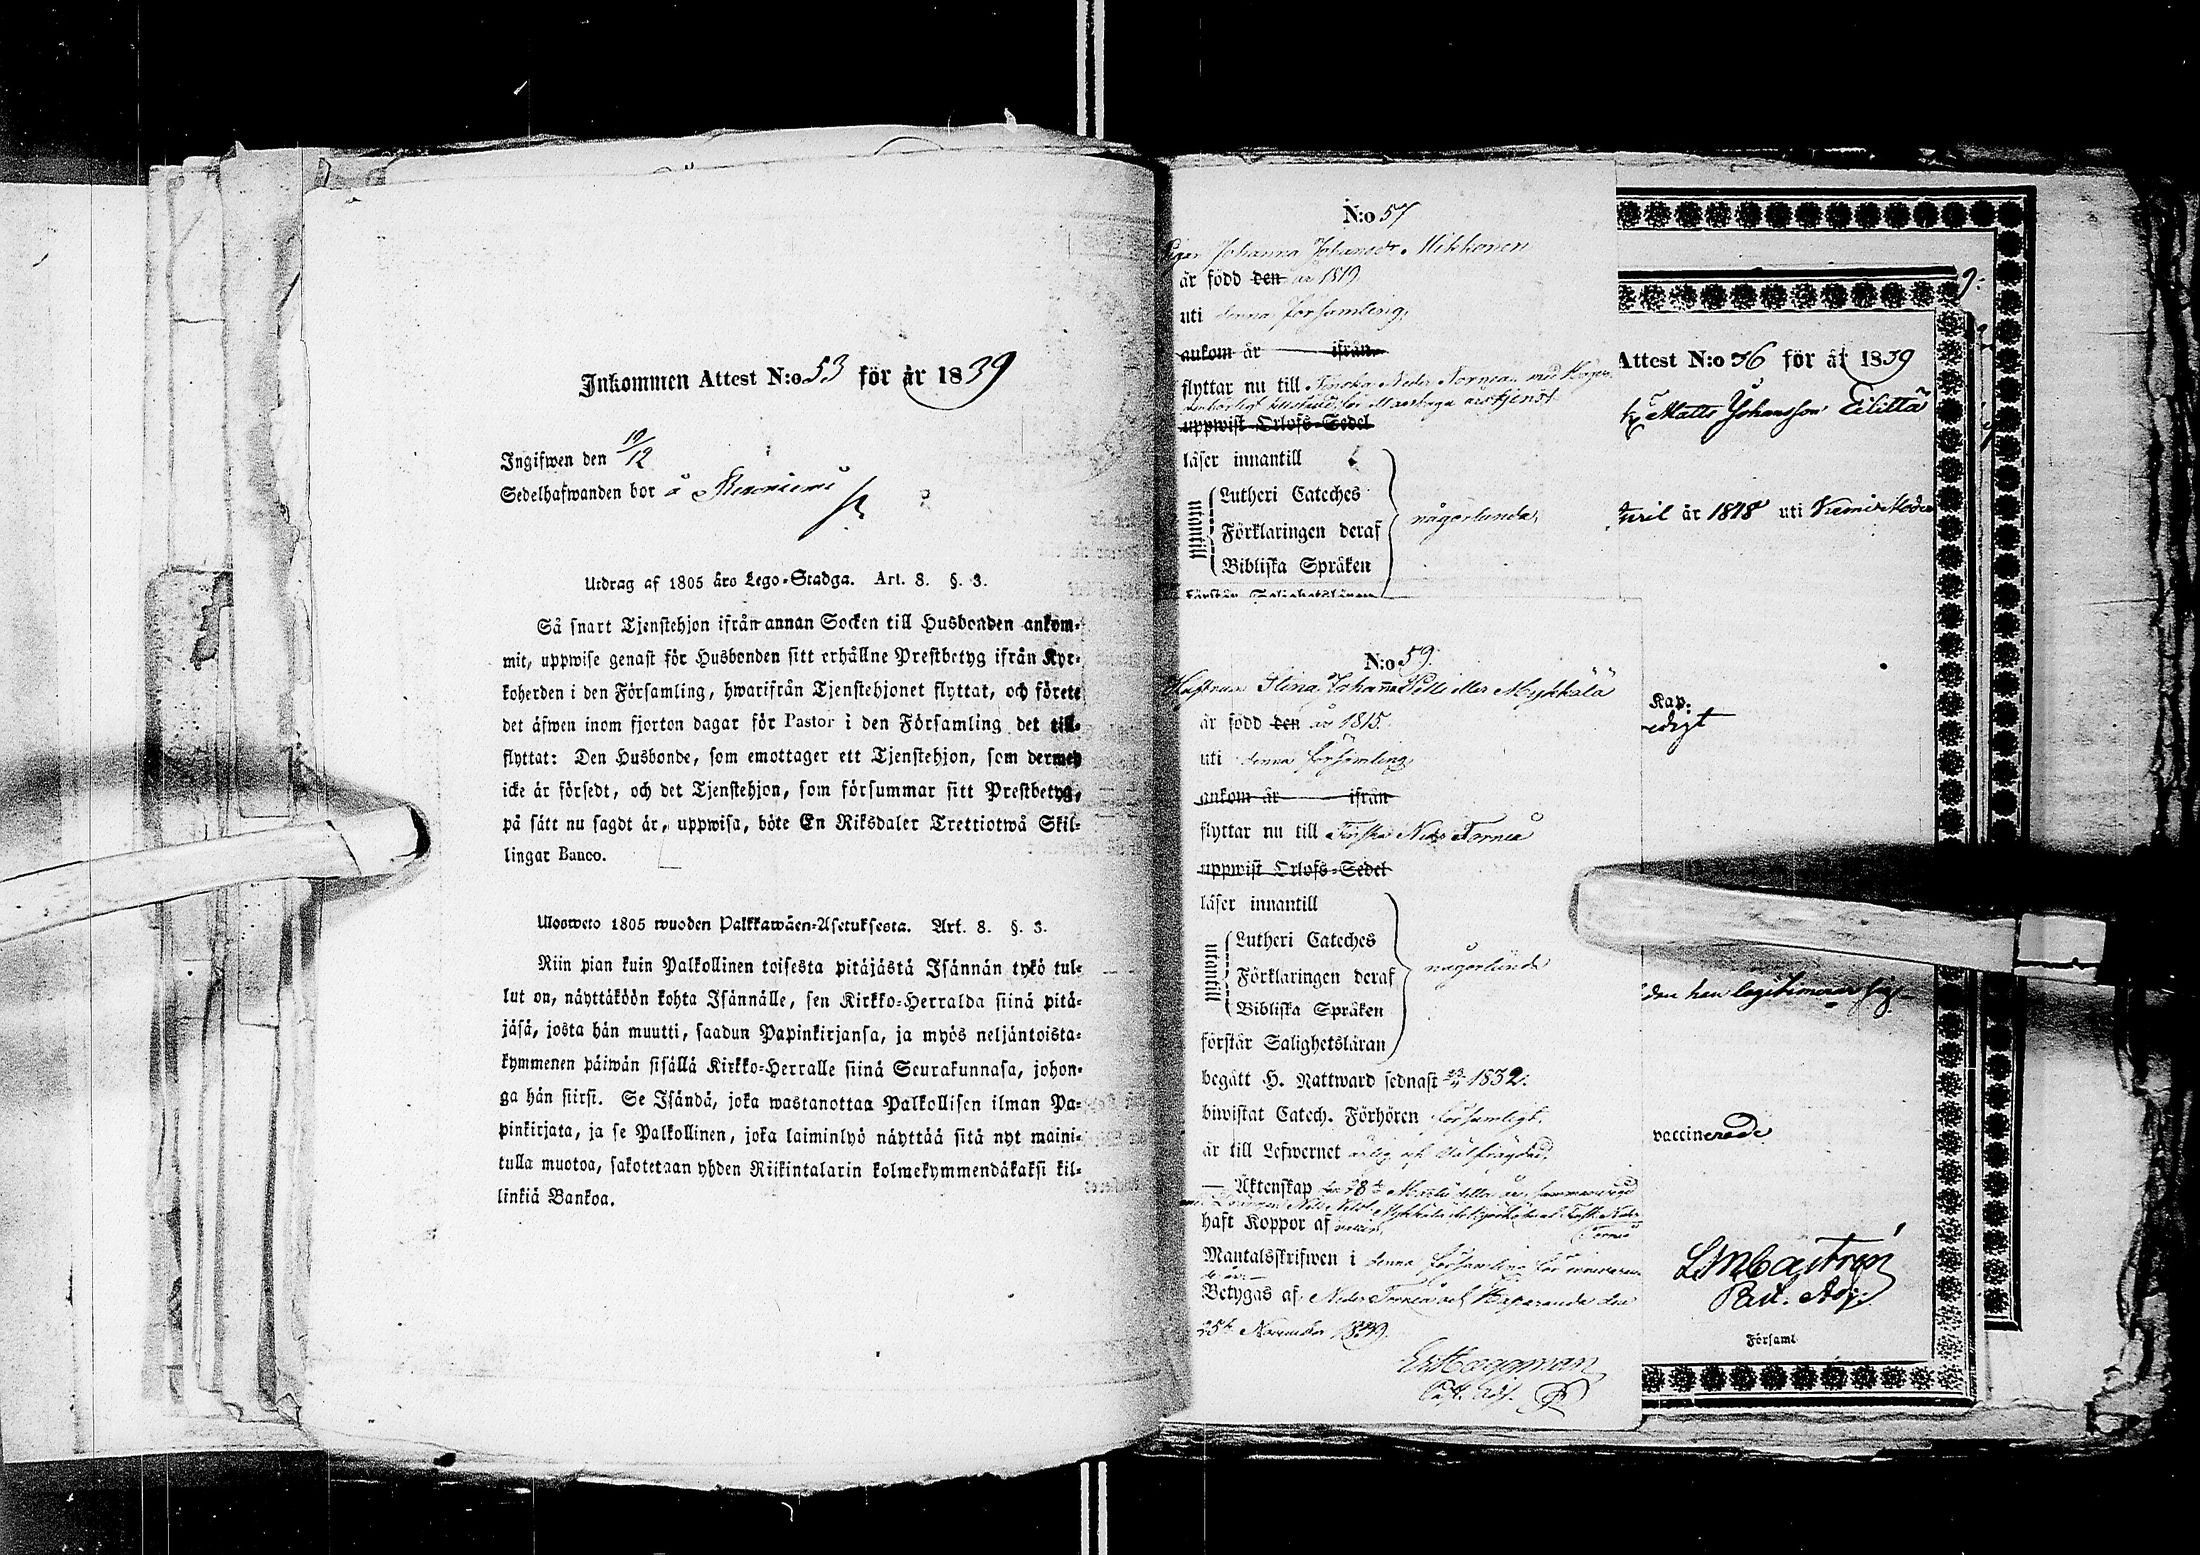 Inkommen Attest N:o 53 för år 1839
Ingifwen den 19/12
Sedelhafwanden bor å
Utdrag af 1805 års Lego-Stadga. Art. 8. §. 3.
Så snart Tjenstehjon ifrån annan Socken till Husbonden ankom-
mit, uppwise genast för Husbonden sitt erhållne Prestbetyg ifrån Kyr-
koherden i den Församling, hwarifrån Tjenstehjonet flyttat, och förete
det äfwen inom fjorton dagar för Pastor i den Församling det till-
flyttat: Den Husbonde, som emottager ett Tjenstehjon, som dermed
icke är försedt, och det Tjenstehjon, som försummar sitt Prestbetyg,
på sätt nu sagdt är, uppwisa, böte En Riksdaler Trettiotwå Skil-
lingar Banco.
Ulosweto 1805 wuoden Palkkawäen-Asetuksesta. Art. 8. §. 3.
Niin pian kuin Palkollinen toisesta pitäjästä Isännän tykö tul-
lut on, näyttäköön kohta Isännälle, sen Kirkko-Herralda siinä pitä-
jäsä, josta hän muutti, saadun Papinkirjansa, ja myös neljäntoista-
kymmenen päiwän sisällä Kirkko-Herralle siinä Seurakunnasa, johon-
ga hän siirsi. Se Isändä, joka wastanottaa Palkollisen ilman Pa-
pinkirjata, ja se Palkollinen, joka laiminlyö näyttää sitä nyt maini-
tulla muotoa, sakotetaan yhden Riikintalarin kolmekymmendäkaksi kil-
linkiä Bankoa.
N:o 57
Pigan Johanna Johansdr Mikkonen
är född den år 1819
uti denna församling,
ankom år ifrån
flyttar nu till Finska Neder Torneå
uppwist Orlofs-Sedel
läser innantill
utantill
Lutheri Cateches
Förklaringen deraf
Bibliska Språken
någorlunda,
förstår Salighetsläran
N:o 59.
Hustrun Stina Johanna Mykkälä
är född den år 1815.
uti denna församling
ankom år ifrån
flyttar nu till Finska Neder Torneå
uppwist Orlofs-Sedel
läser innantill
utantill
Lutheri Cateches
Förklaringen deraf
Bibliska Språken
någorlunda
förstår Salighetsläran
begått H. Nattward sednast 1832.
biwistat Catech. Förhören församligt.
är till Lefwernet ärlig och
— Äktenskap den 28de Martii detta år
haft Koppor af
Mantalsskrifwen i denna församling för innewarande
Betygas af Neder Torneå och Haparanda den
25te November 1839.
Past. Adj.
Attest N:o 56 för år 1839
Matts Johansson
April år 1818 uti Kemi
Kap:
den han legitimerar sig
vaccinerade
L M Castrén
Past. Adj:
Församl